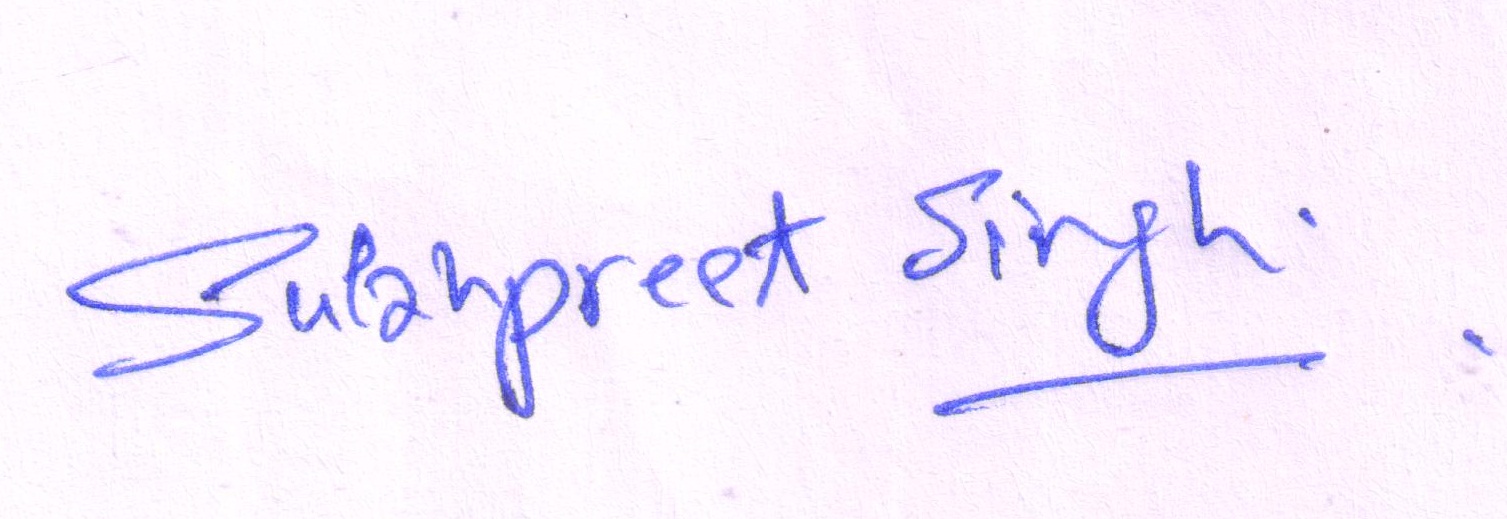 Sukhpreet Singh.